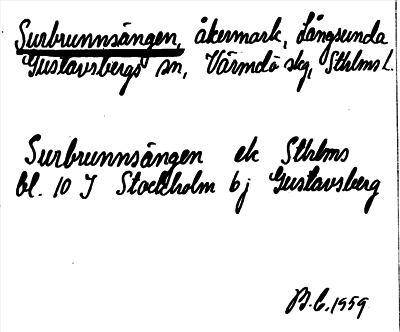 Surbrunnsängen, åkermark, Långsunda
Gustavsbergs sn, Värmdö skg, Sthlms l.
Surbrunnsängen ek Sthlms
bl. 10 J Stockholm bj Gustavsberg
B.C. 1959